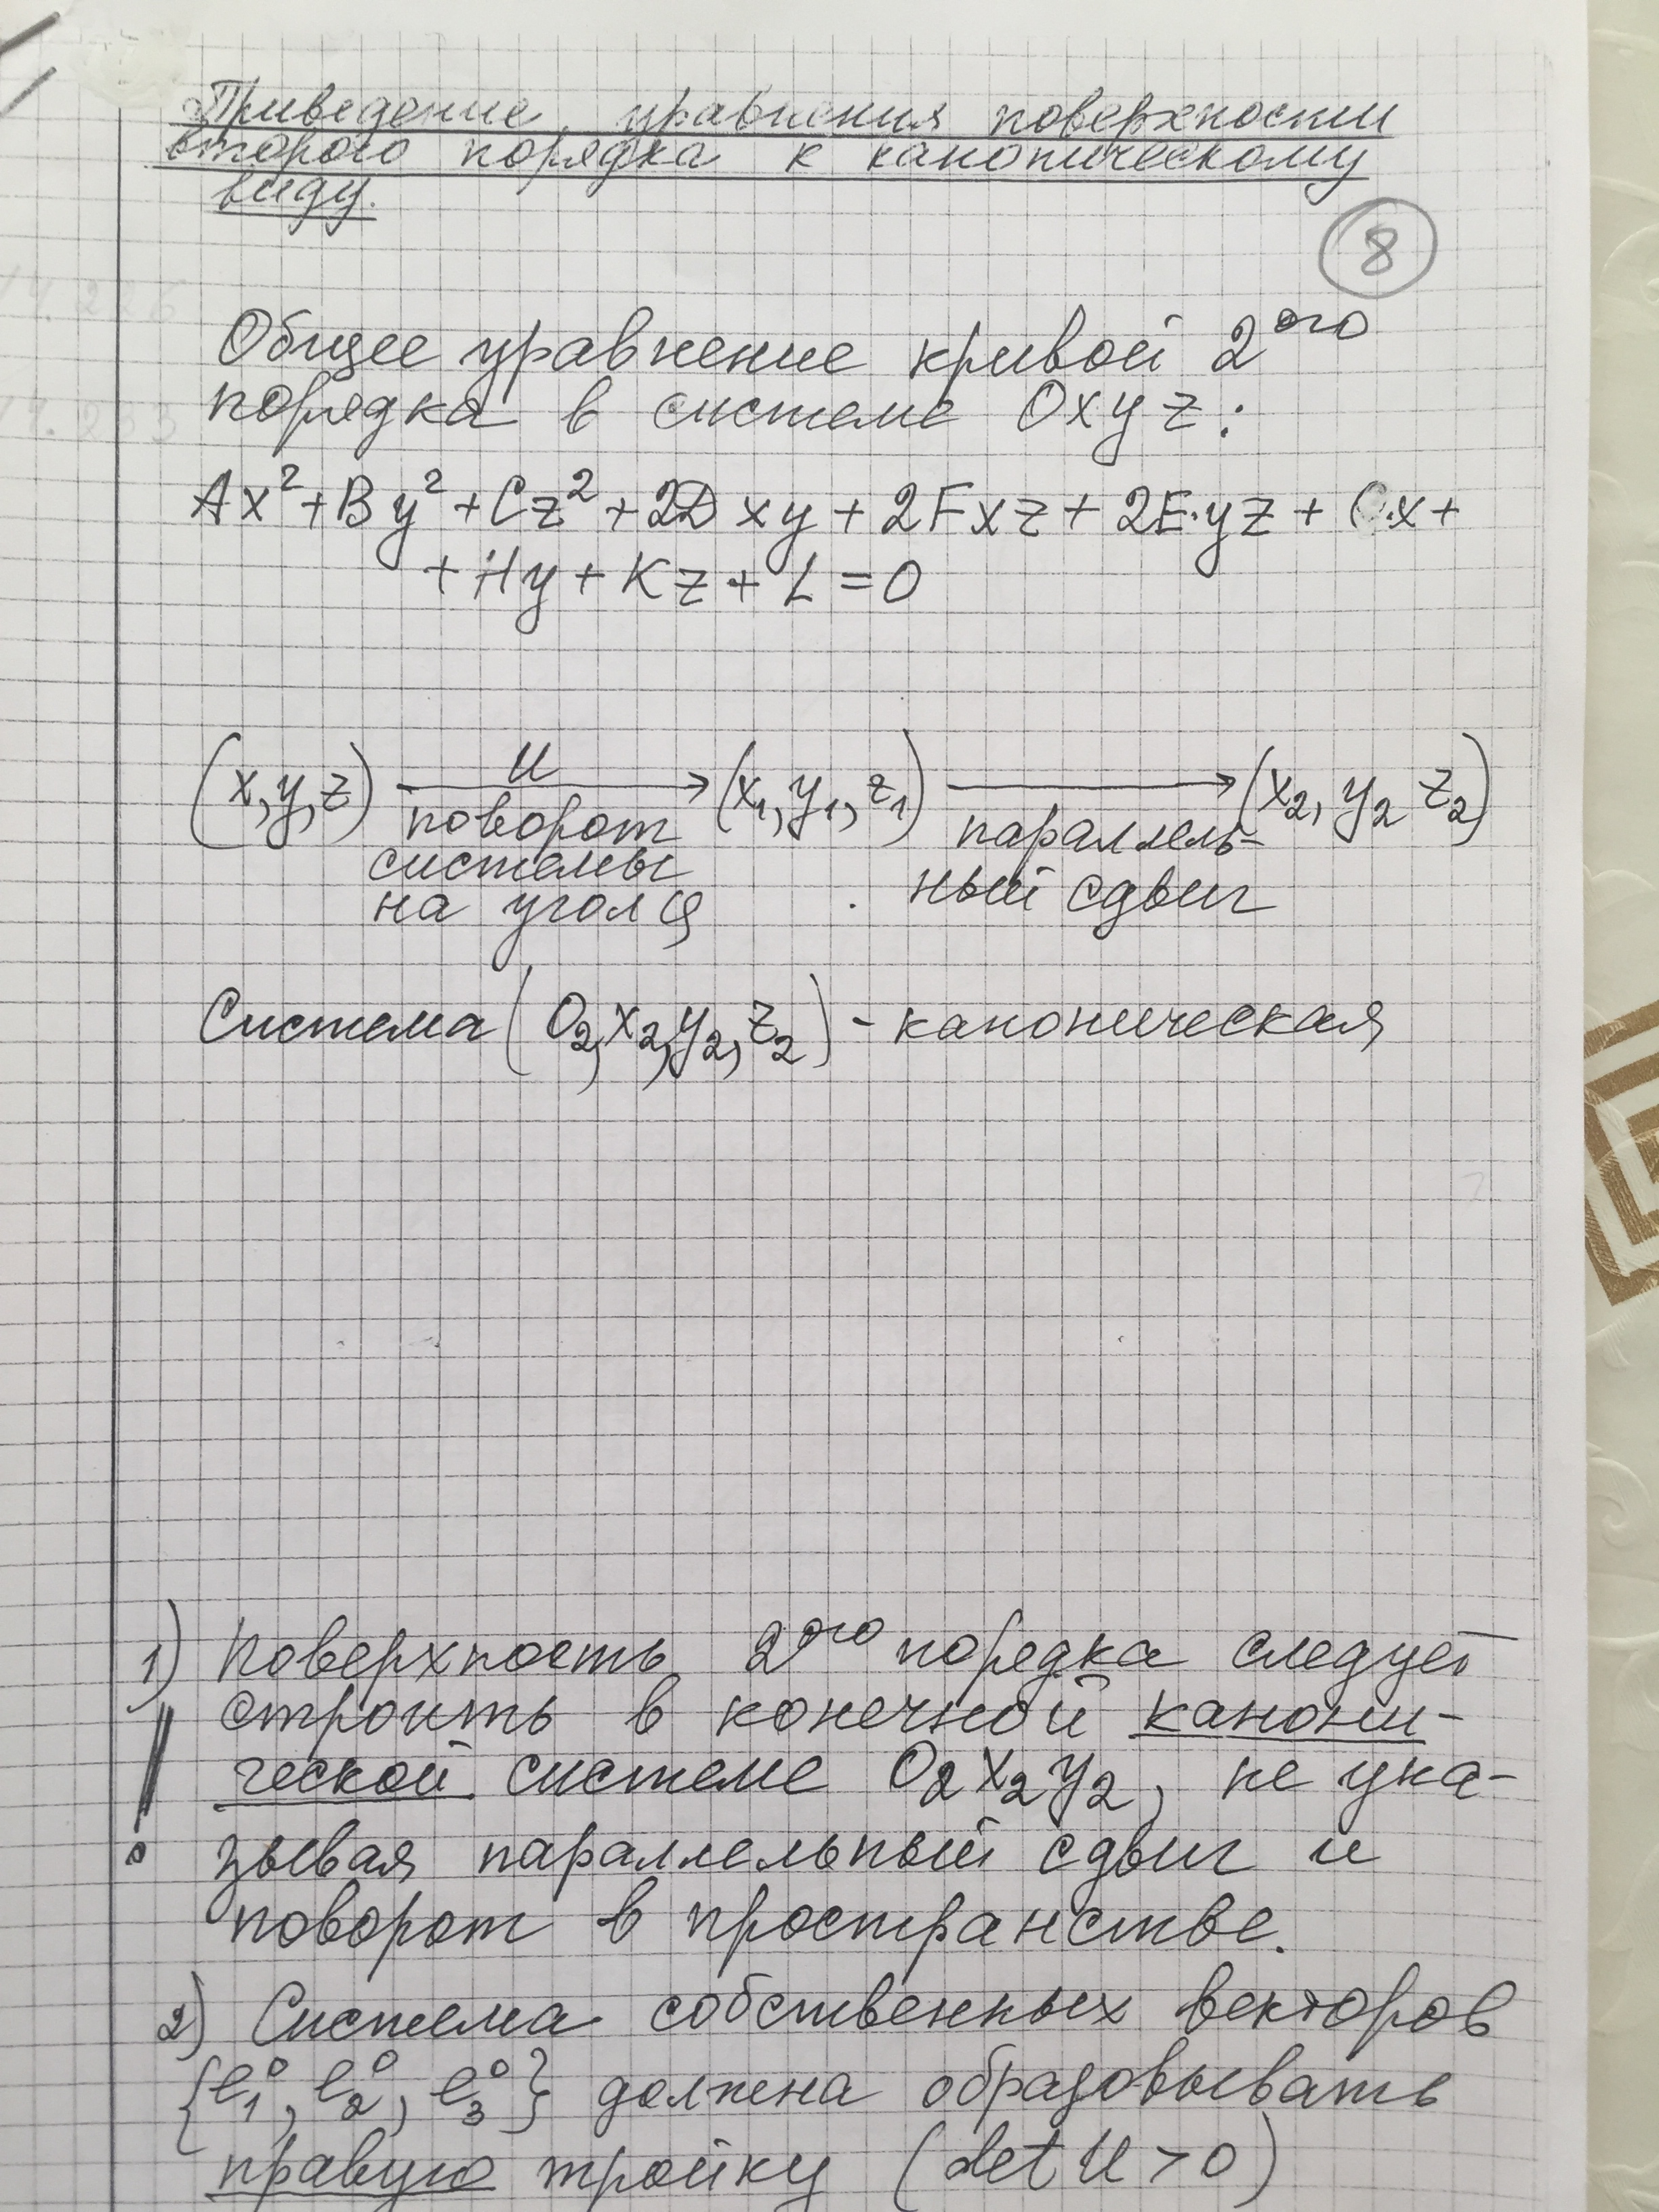 Приведение уравнения поверхности
второго порядка к каноническому
виду.
8
Общее уравнение кривой 2ого
порядка в системе Oxyz:
Ax²+By²+Cz²+2Dxy+2Fxz+2E·yz+ x+
+Hy+Kz+L=0
(x,y,z) U (x₁,y₁,z₁) (x₂,y₂ z₂)
поворот параллель-
системы ный сдвиг
на угол φ
Система (O₂,x₂,y₂,z₂) - каноническая
1) Поверхность 2ого порядка следует
строить в конечной канони-
ческой системе O₂x₂y₂, не ука-
зывая параллельный сдвиг и
поворот в пространстве.
2) Система собственных векторов
{e₁⁰, e₂⁰, e₃⁰} должна образовывать
правую тройку (det U > 0)